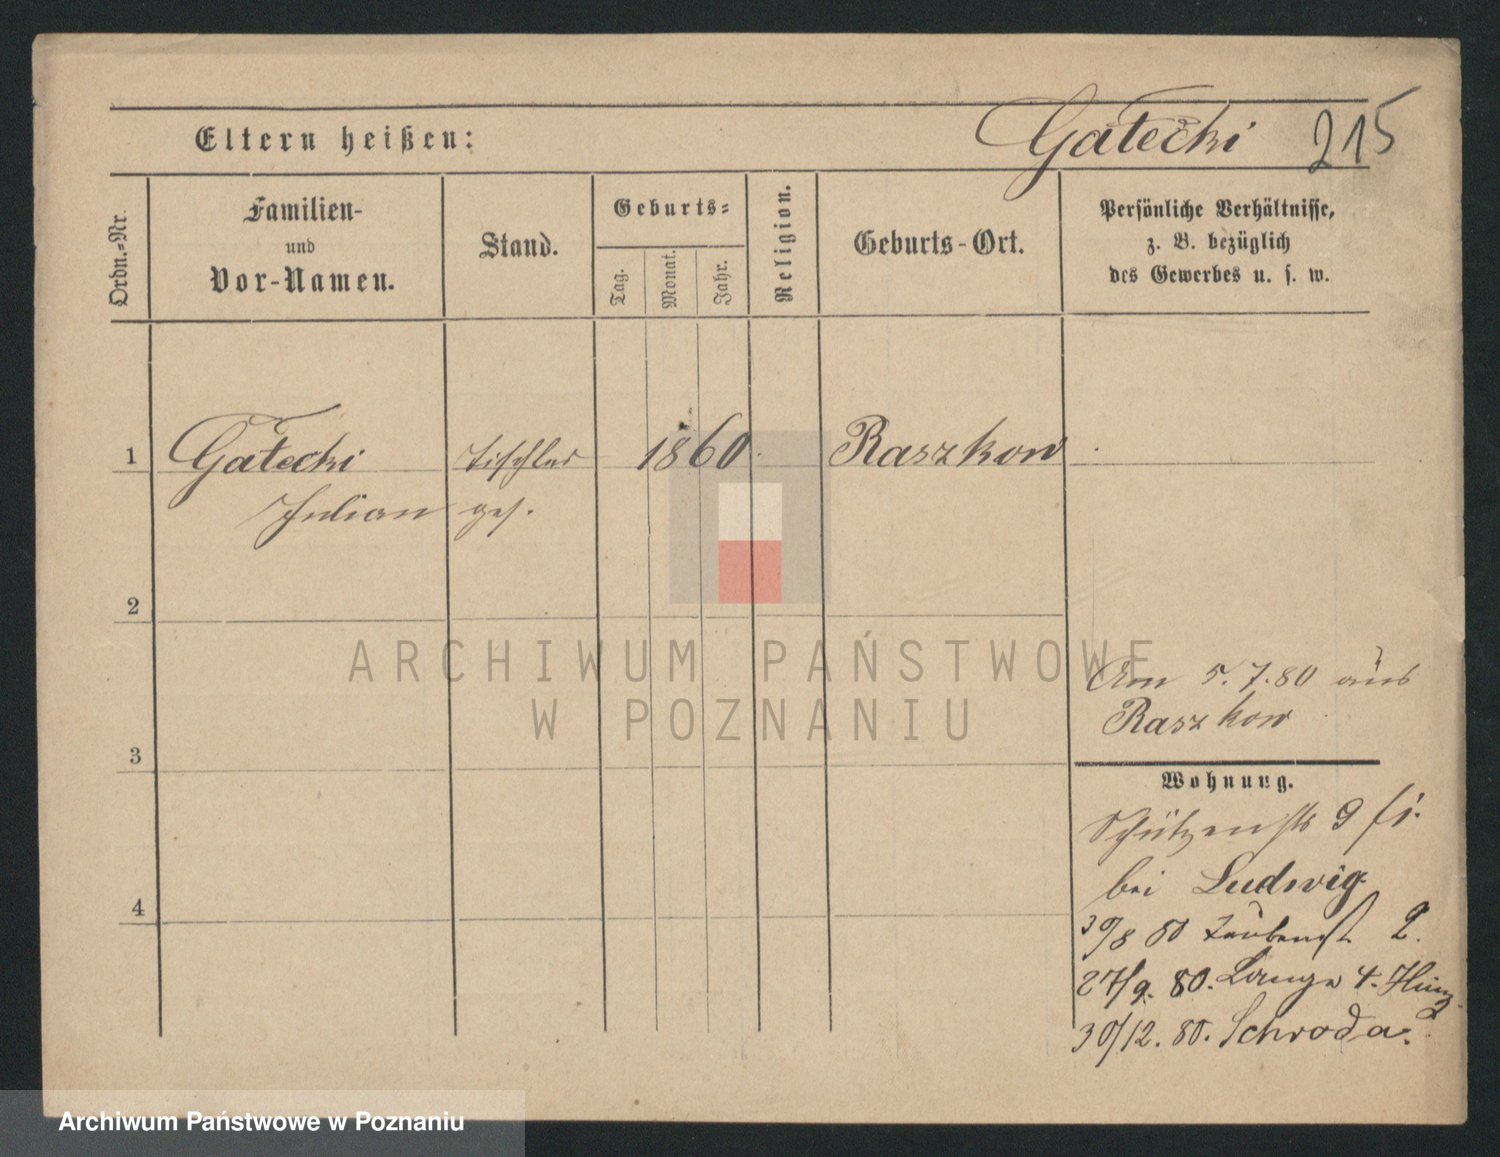 Eltern heißen:
Gałecki 215
Ordn.-Nr.
Familien-
und
Vor-Namen.
Stand.
Geburts-
Tag.
Monat.
Jahr.
Religion.
Geburts-Ort.
Persönliche Verhältnisse,
z. B. bezüglich
des Gewerbes u. s. w.
1 Gałecki Tischler 1860 Raszkow
Julian ges.
2
3
4
Am 5.7.80 aus
Raszkow
Wohnung.
Schützenstr 9
bei Ludwig
30/8 80 Taubenst 2.
27/9. 80. Lange 4. Hinz
30/12. 80. Schroda.
ARCHIWUM PAŃSTWOWE
W POZNANIU
Archiwum Państwowe w Poznaniu